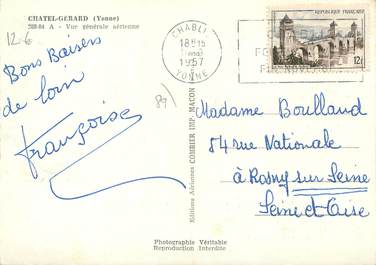 CHATEL-GERARD (Yonne)
208-84 A - Vue générale aérienne
12-6
Bons Baisers
de loin
Françoise
89
CHABLI
18H15
1957
YONNE
REPUBLIQUE FRANÇAISE
12F
Madame Boulland
84 rue Nationale
à Rosny sur Seine
Seine et Oise
Editions Aériennes COMBIER IMP. MACON
Photographie Véritable
Reproduction Interdite